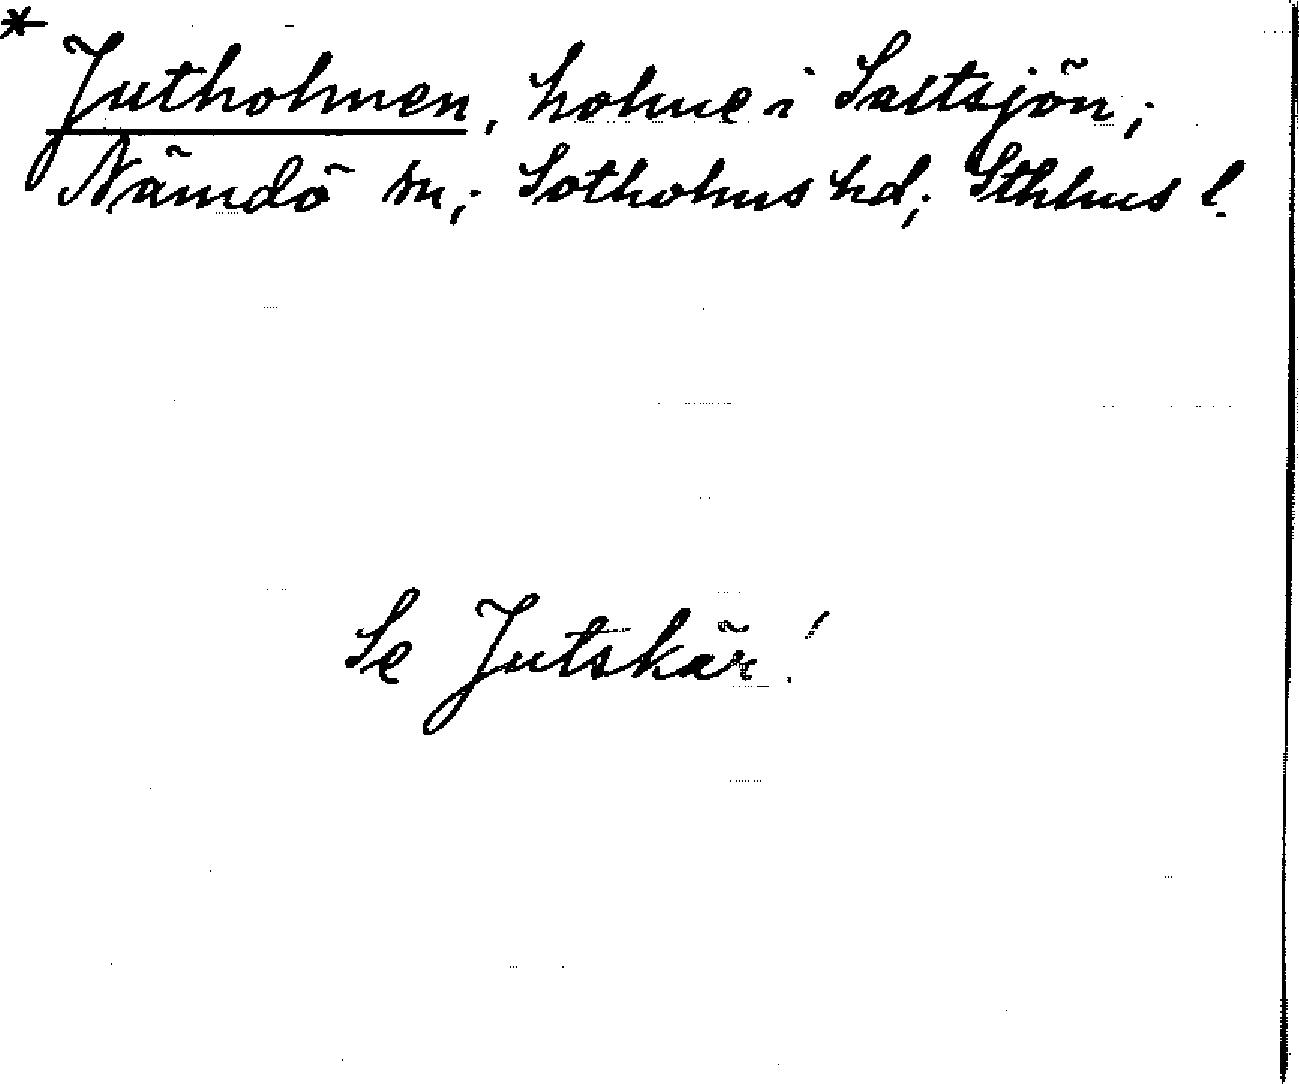 * Jutholmen, holme i Saltsjön;
Nämdö sn; Sotholms hd; Sthlms l.
Se Jutskär!